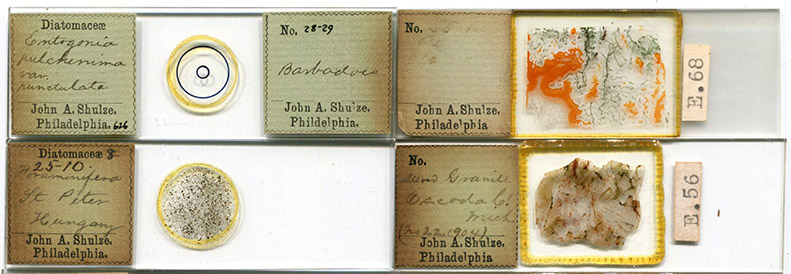 Diatomaceæ
Entogonia
pulcherrima
var.
punctulata
John A. Shulze.
Philadelphia. 626
No. 28-29
Barbadoes
John A. Shulze.
Phildelphia.
No.
John A. Shulze.
Philadelphia
E.68
Diatomaceæ 8
25-10.
Foraminifera
St Peter
Hungary
John A. Shulze.
Philadelphia.
No.
Granite
Oscoda Co.
Mich
John A. Shulze.
Philadelphia
E.56